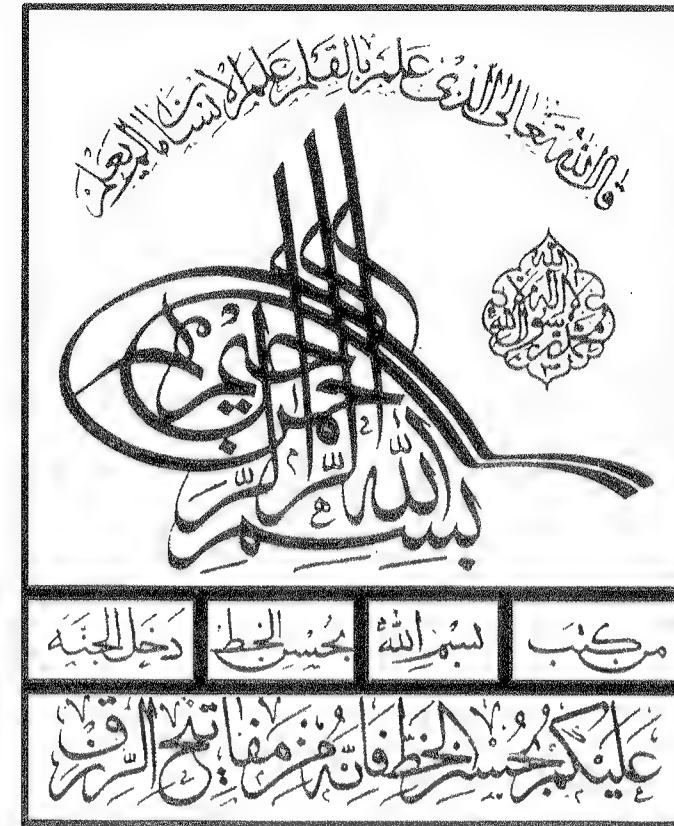 قال الله تعالى الذي علم بالقلم علم الإنسان ما لم يعلم
لا إله إلا الله
محمد رسول الله
بسم الله الرحمن الرحيم
من كتب بسم الله بحسن الخط دخل الجنة
عليكم بحسن الخط فإنه من مفاتيح الرزق